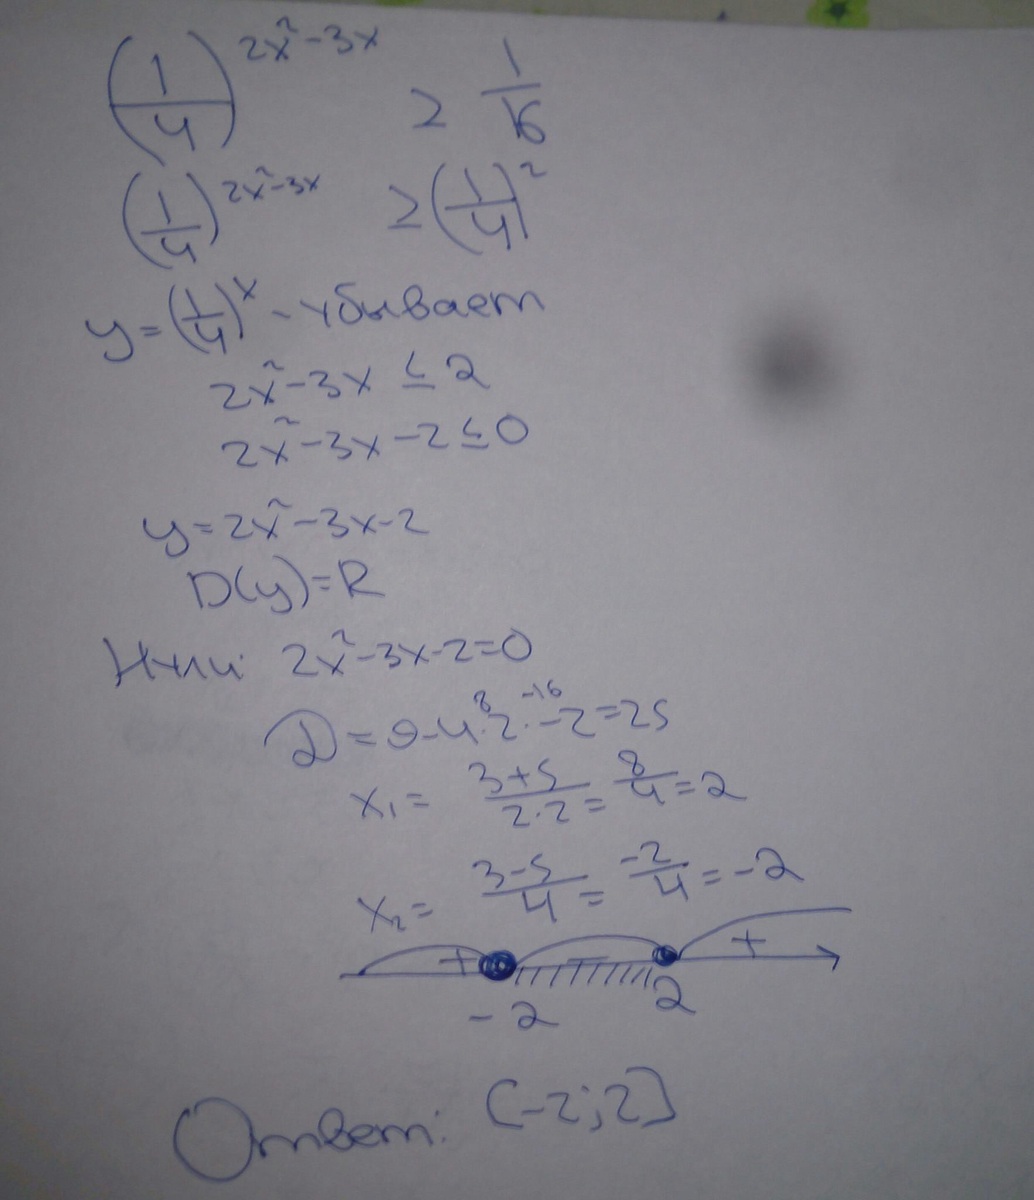 (1/4)^(2x²-3x) ≥ 1/16
(1/4)^(2x²-3x) ≥ (1/4)²
y=(1/4)^x - убывает
2x²-3x ≤ 2
2x²-3x-2≤0
y=2x²-3x-2
D(y)=R
Нули: 2x²-3x-2=0
D=9-4·2·-2=25 8 -16
x₁= (3+5)/(2·2) = 8/4 = 2
x₂= (3-5)/4 = -2/4 = -2
+ - +
-2 2
Ответ: [-2;2]